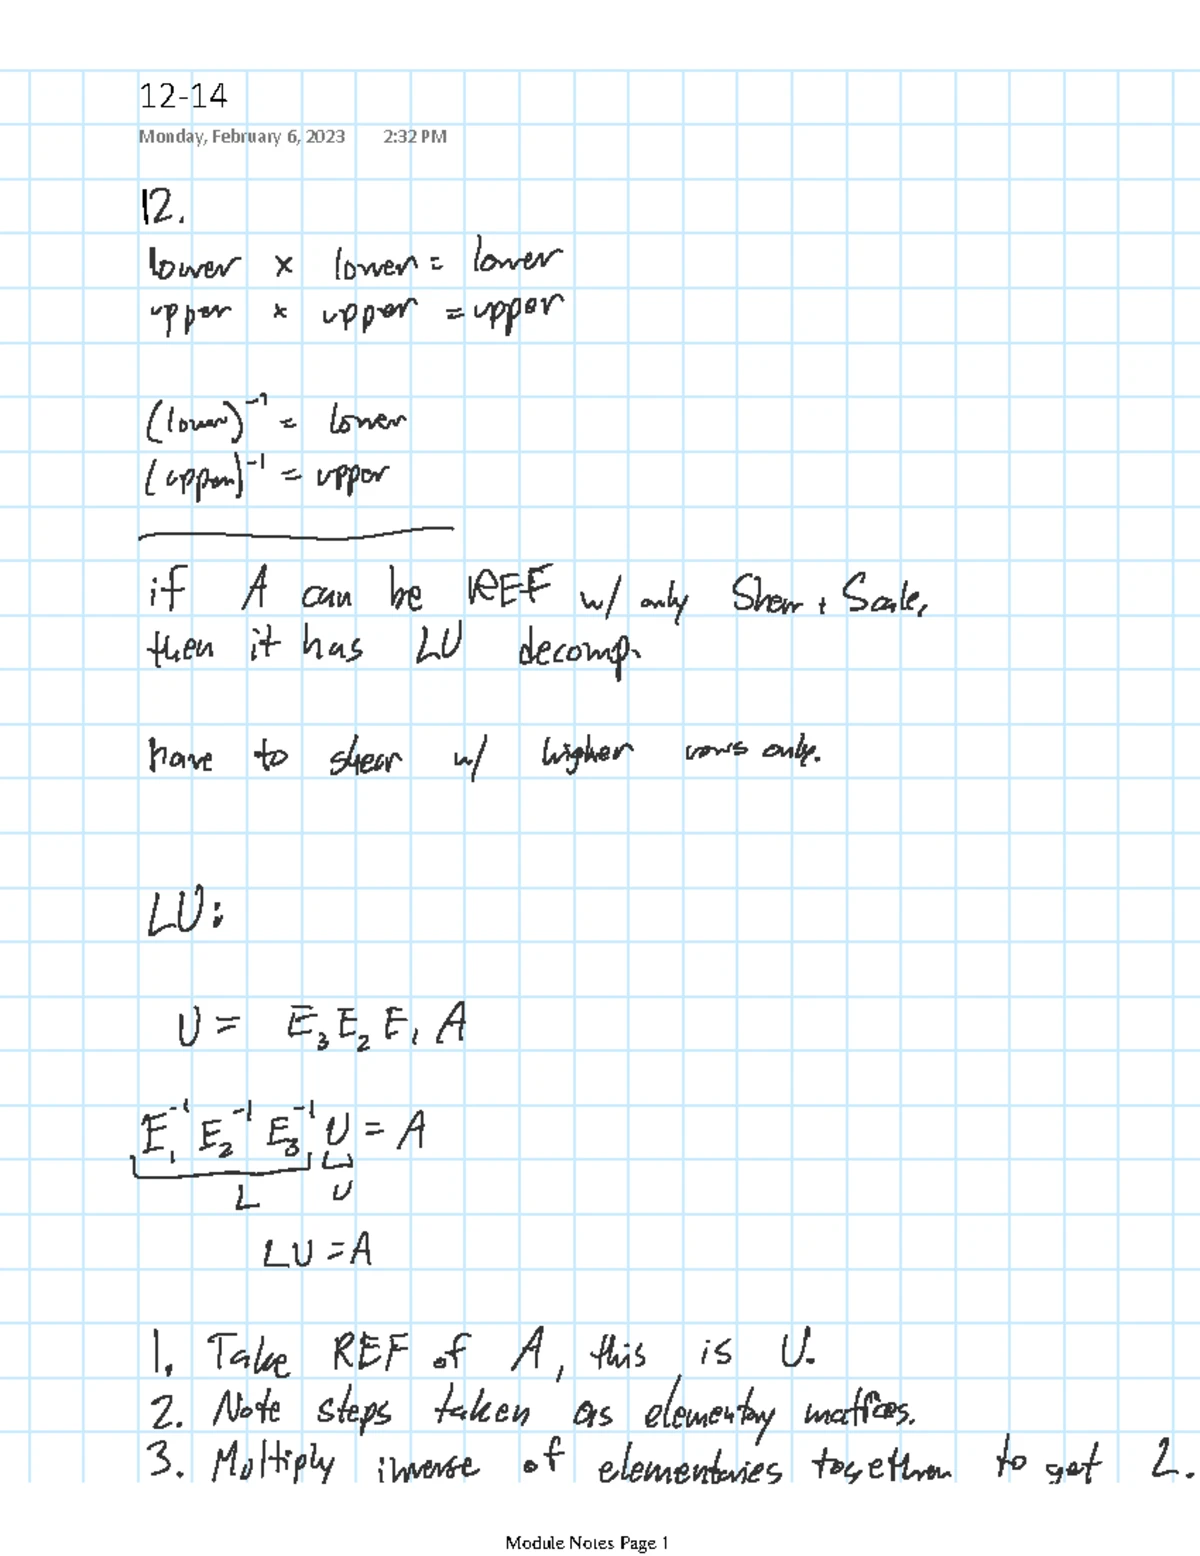 12-14
Monday, February 6, 2023 2:32 PM
12.
lower × lower = lower
upper × upper = upper
(lower)⁻¹ = lower
(upper)⁻¹ = upper
if A can be REF w/ only Shear + Scale,
then it has LU decomp.
have to shear w/ higher rows only.
LU:
U = E₃ E₂ E₁ A
E₁⁻¹ E₂⁻¹ E₃⁻¹ U = A
L U
LU = A
1. Take REF of A, this is U.
2. Note steps taken as elementary matrices.
3. Multiply inverse of elementaries together to get L.
Module Notes Page 1